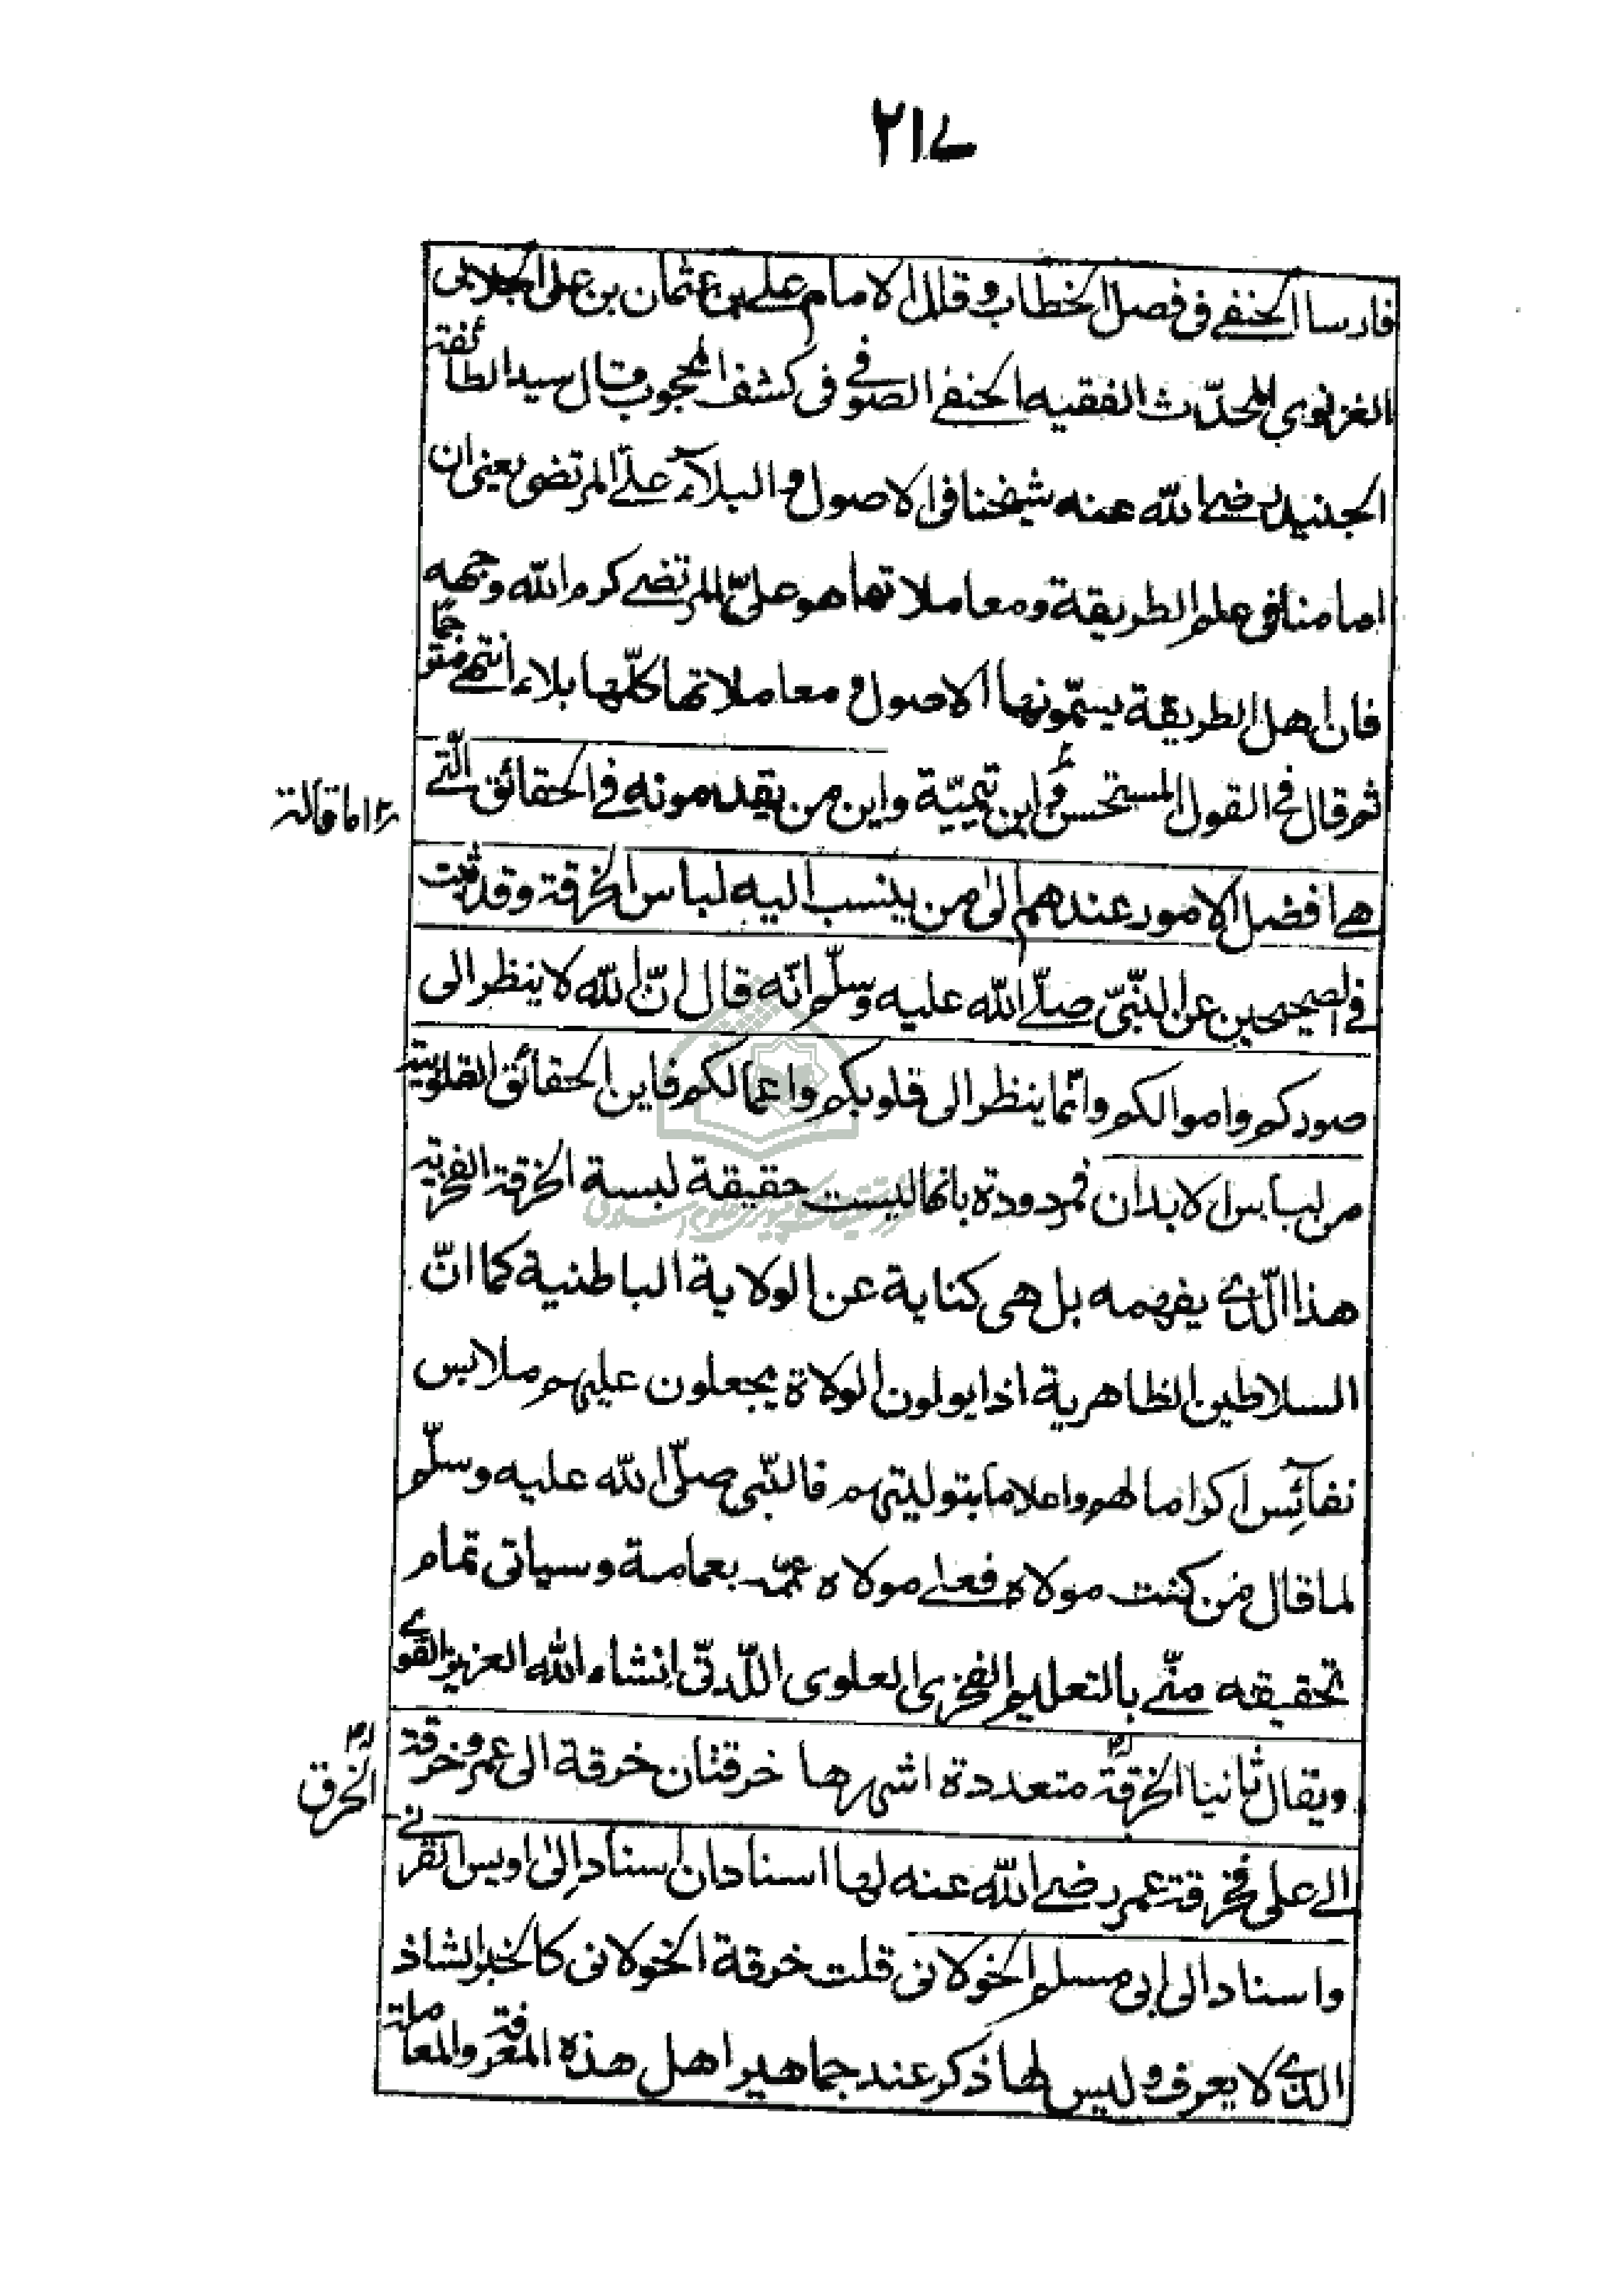 ٢١٧
فارسا الحنفي في فصل الخطاب وقال الامام علي بن عثمان بن علي الجلابي
الغزنوي المحدّث الفقيه الحنفي الصوفي في كشف المحجوب قال سيد الطائفة
الجنيد رضي الله عنه شيخنا في الاصول و البلآء علي المرتضى يعني ان
امامنا في علم الطريقة ومعاملاتها هو عليّ المرتضى كرم الله وجهه
فان اهل الطريقة يسمّونها الاصول و معاملاتها كلّها بلاء انتهى مترجما
ثم قال في القول المستحسن و ابن تيميّة واين من يقدمونه في الحقائق الّتي
ء اما قالة
هي افضل الامور عندهم الى من ينسب اليه لباس الخرقة وقد ثبت
في الصحيحين عن النّبيّ صلّى الله عليه وسلّم انّه قال انّ الله لا ينظر الى
صوركم واموالكم وانّما ينظر الى قلوبكم واعمالكم فاين الحقائق القلوبية
من لباس الابدان فمردودة بانها ليست حقيقة لبسة الخرقة الفخرية
هذا الّذي يفهمه بل هي كناية عن الولاية الباطنية كما انّ
السلاطين الظاهرية اذا يولون الولاة يجعلون عليهم ملابس
نفآئس اكراما لهم واعلاما بتوليتهم فالنّبي صلّى الله عليه وسلّم
لما قال من كنت مولاه فعلي مولاه عمّه بعمامة وسياتى تمام
تحقيقه منّي بالتعليم الفخري العلوي اللّدنّي انشاء الله العزيز القوي
ويقال ثانيا الخرقة متعددة اشهرها خرقتان خرقة الى عمر وخرقة
الخرق
الى علي فخرقة عمر رضي الله عنه لها اسنادان اسناد الى اويس القرني
واسناد الى ابي مسلم الخولاني قلت خرقة الخولاني كالخبر الشاذ
الذي لا يعرف و ليس لها ذكر عند جماهير اهل هذه المعرفة والمعاملة